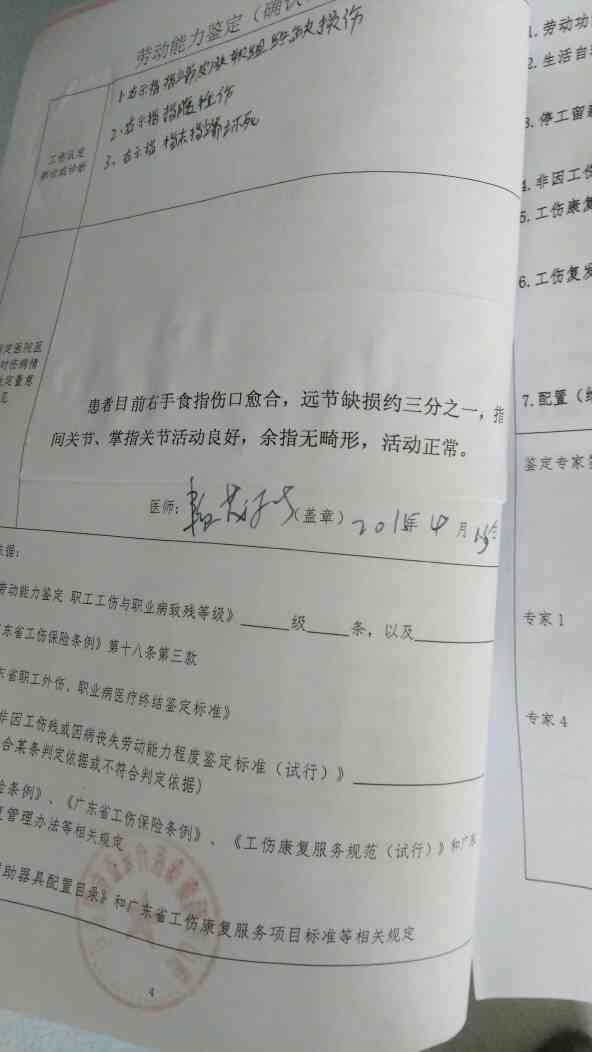 劳动能力鉴定（确认
工伤认定
1、右示指指端皮肤软组织缺损伤
2、右示指
3、右示指 末指端坏死
定医院医
对伤病情
患者目前右手食指伤口愈合，远节缺损约三分之一，指
间关节、掌指关节活动良好，余指无畸形，活动正常。
医师：
（盖章）
4 月
依据：
劳动能力鉴定 职工工伤与职业病致残等级》______级_____条，以及
东省工伤保险条例》第十八条第三款
东省职工外伤、职业病医疗终结鉴定标准》
非因工伤残或因病丧失劳动能力程度鉴定标准（试行）》
合某条判定依据或不符合判定依据）
险条例》、《广东省工伤保险条例》、《工伤康复服务规范（试行）》和广东
管理办法等相关规定
助器具配置目录》和广东省工伤康复服务项目标准等相关规定
4
1.劳动功
2.生活自
3.停工留
4.非因工伤
5.工伤康复
6.工伤复发
7.配置（
鉴定专家
专家1
专家4